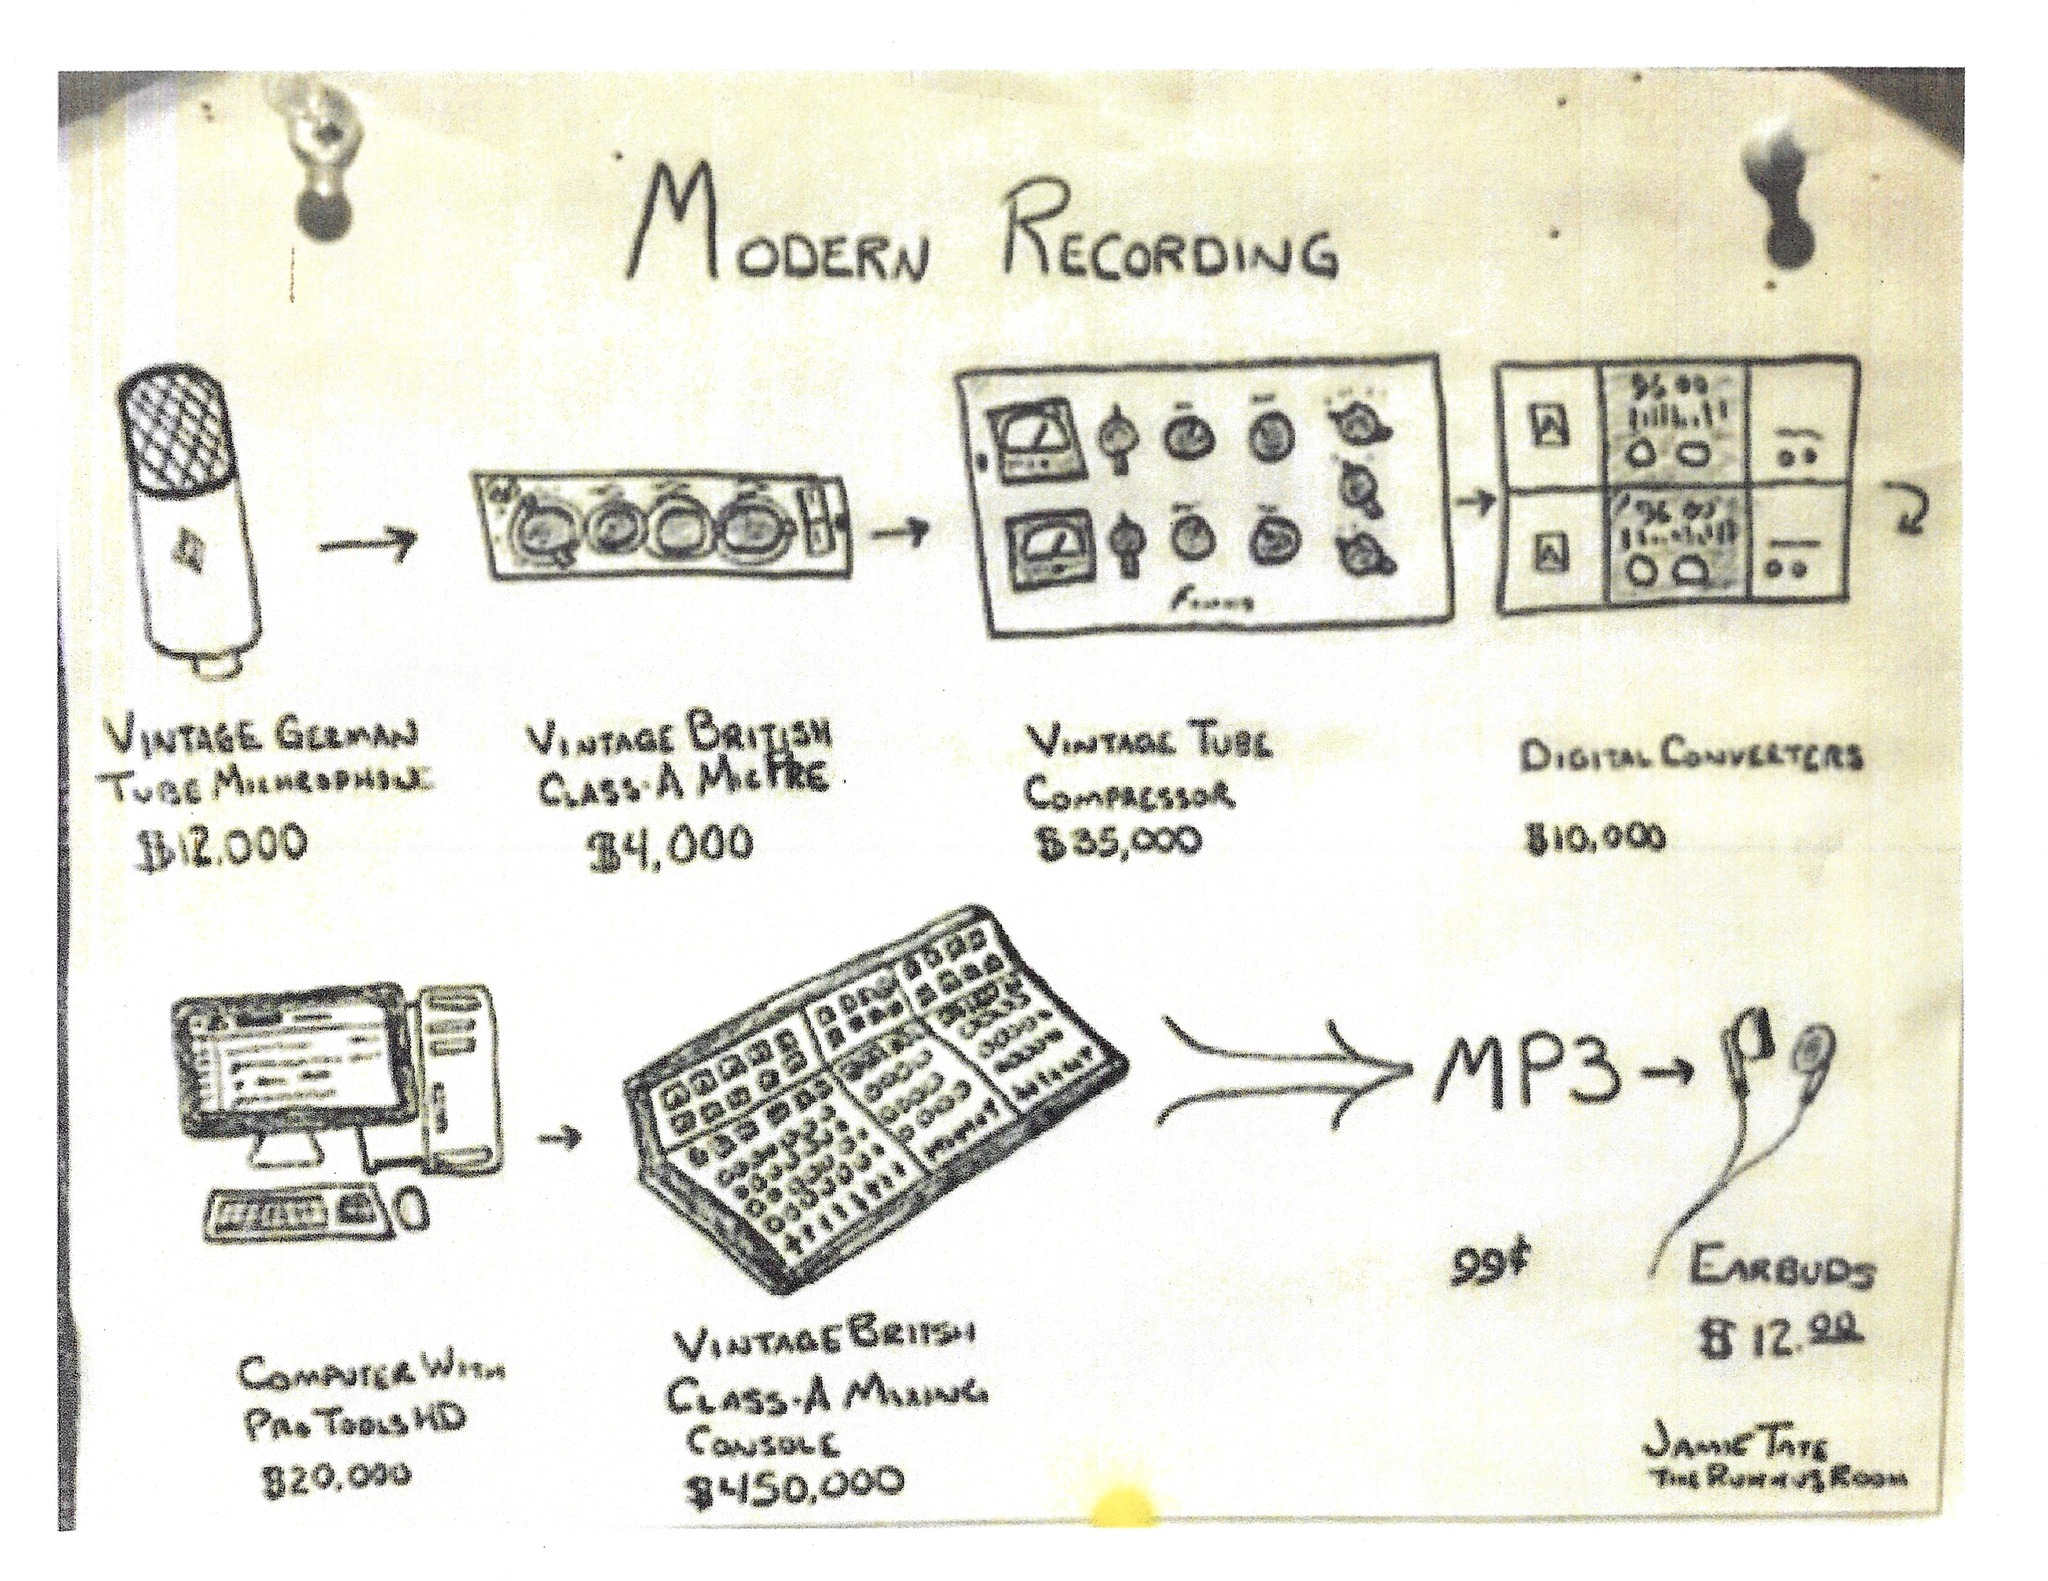 MODERN RECORDING
VINTAGE GERMAN
TUBE MICHROPHONE
$12,000
VINTAGE BRITISH
CLASS-A MIC PRE
$4,000
VINTAGE TUBE
COMPRESSOR
$35,000
DIGITAL CONVERTERS
$10,000
96 00
96 00
MP3
99¢
EARBUDS
$12.00
COMPUTER WITH
PRO TOOLS HD
$20,000
VINTAGE BRITISH
CLASS-A MIXING
CONSOLE
$450,000
JAMIE TATE
THE ROOM